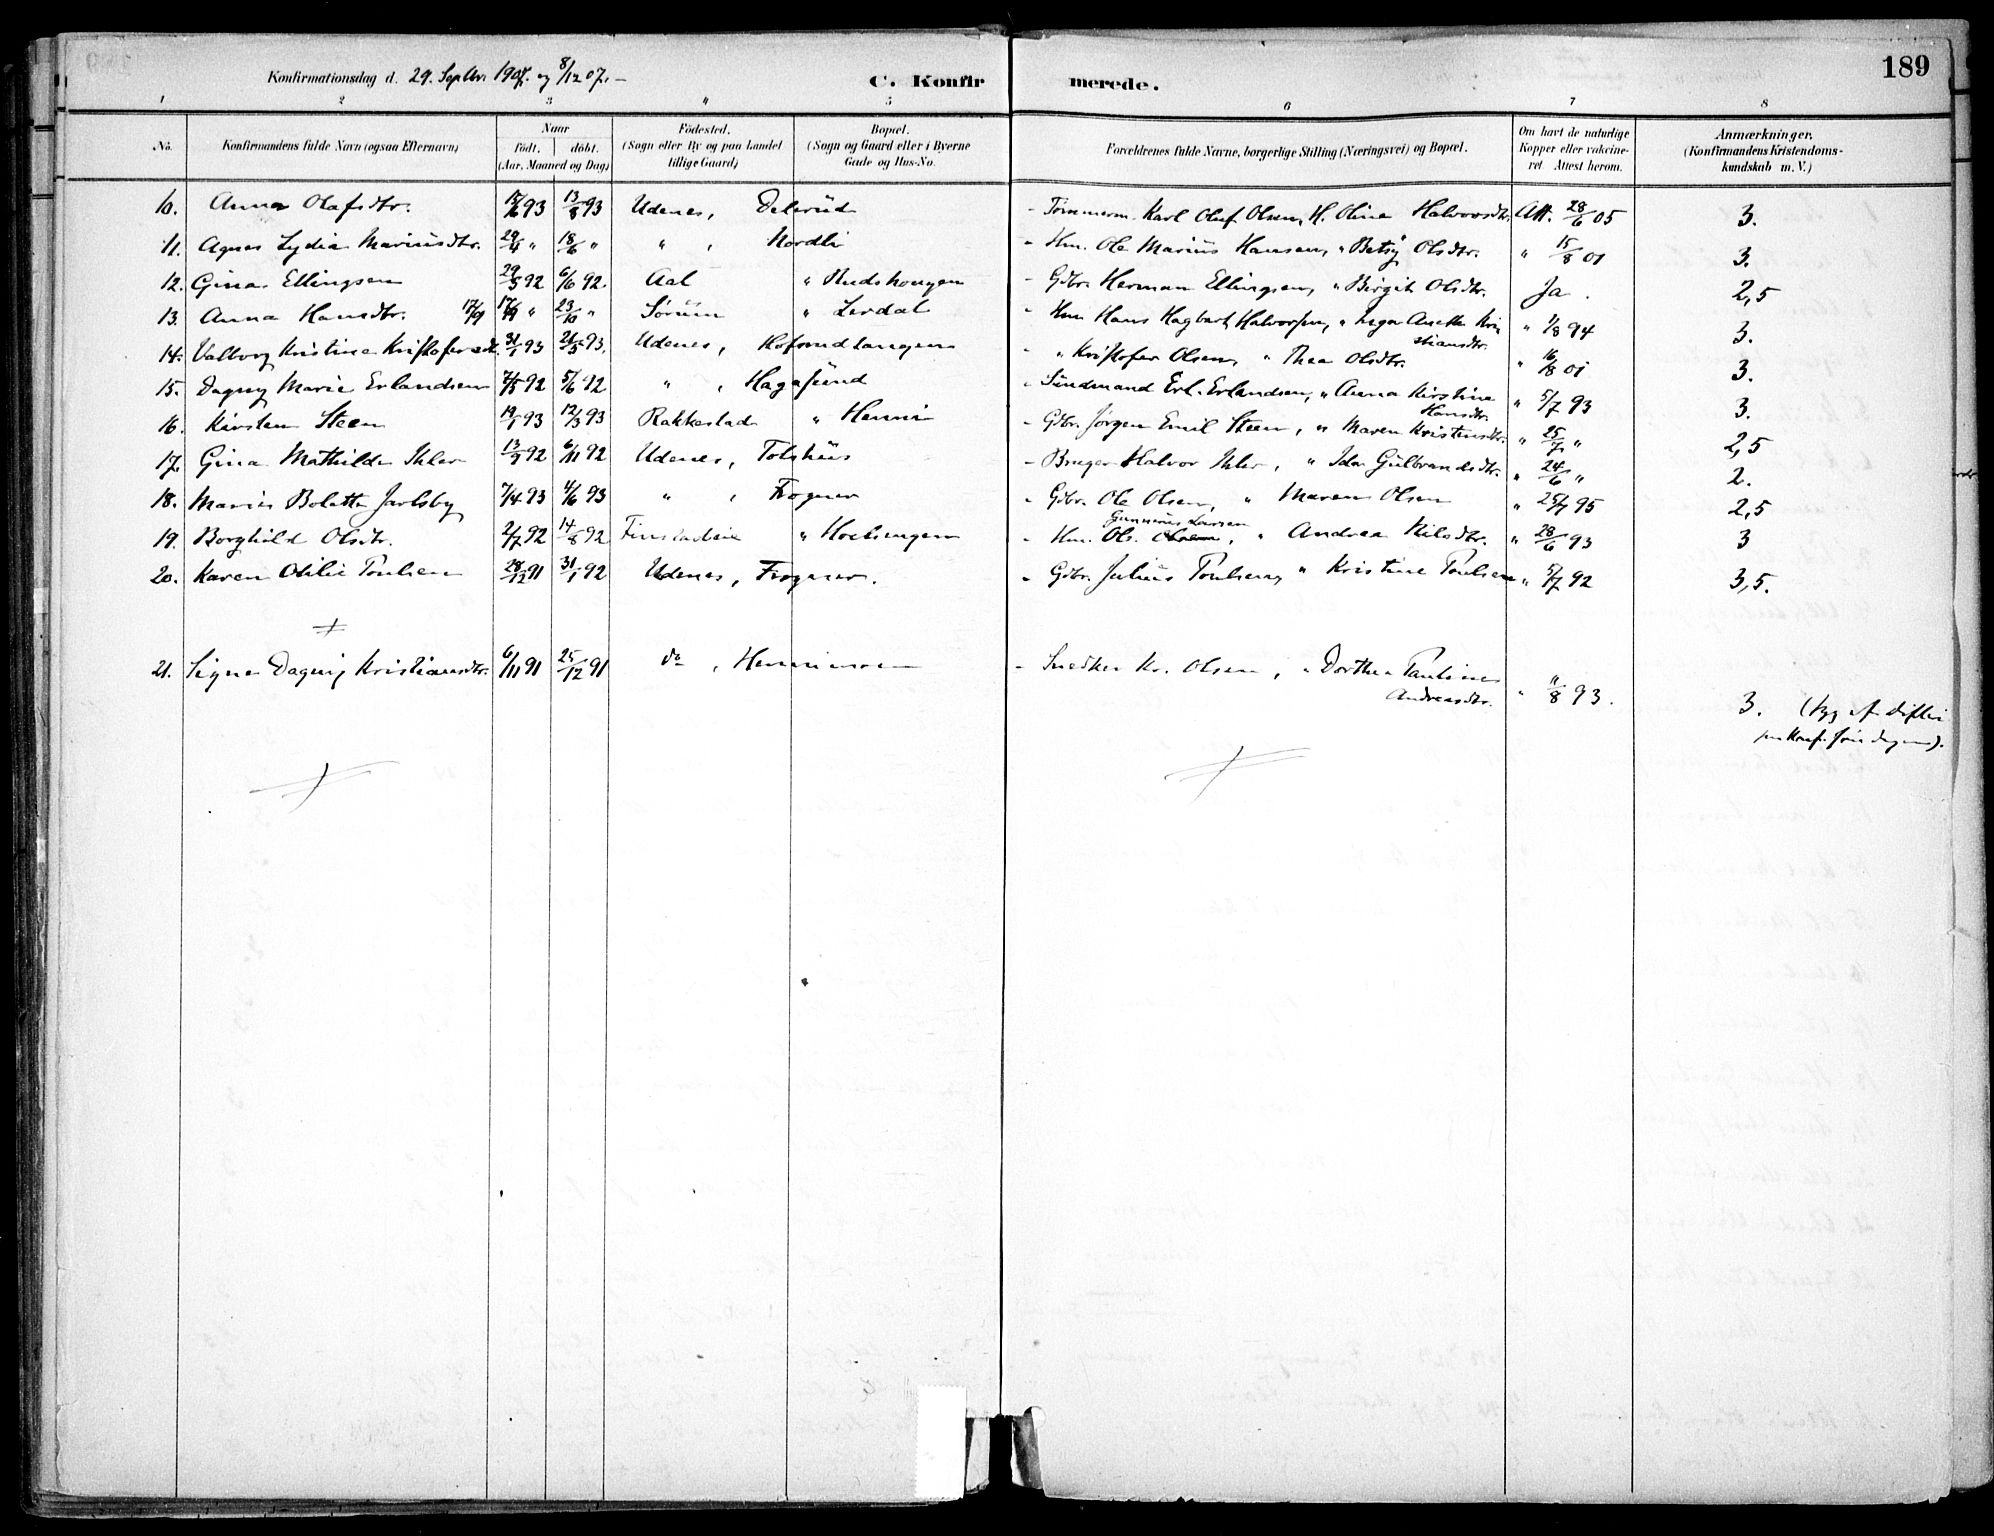 189
Konfirmationsdag d. 29. Septbr. 1907. og 8/12 07.
C. Konfirmerede.
1 2 3 4 5 6 7 8
No. Konfirmandens fulde Navn (ogsaa Efternavn) Naar født. døbt. (Aar, Maaned og Dag) Fødested. (Sogn eller By og paa Landet tillige Gaard) Bopæl. (Sogn og Gaard eller i Byerne Gade og Hus-No. Forældrenes fulde Navne, borgerlige Stilling (Næringsvei) og Bopæl. Om havt de naturlige Kopper eller vakcineret. Attest herom. Anmærkninger. (Konfirmandens Kristendomskundskab m. V.)
10. Anna Olafsdtr. 93 13/8 93 Udenes, Delerud - Tømmerm. Karl Oluf Olsen, H. Oline Halvorsdtr. Att. 28/6 05 3.
11. Agnes Lydia Mariusdtr. 29/4 " 18/6 " " , Nordli - Hm. Ole Marius Hansen, " Betsy Olsdtr. " 15/8 01 3.
12. Gina Ellingsen 29/3 92 6/6 92. Aal " Rudshougen - Gdbr. Herman Ellingsen, " Birgit Olsdtr. Ja. 2,5
13. Anna Hansdtr. 17/9 17/9 " 23/10 " Sørum " Lerdal - Hm Hans Hagbart Halvorsen, " Inga Anette Kristiansdtr. " 1/8 94 3.
14. Valborg Kristine Kristofersdt. 31/1 93 21/5 93. Udenes, Hofsrudtangen - " Kristofer Olsen, " Thea Olsdtr. " 16/8 01 3.
15. Dagny Marie Erlandsen 7/5 92 5/6 92 " , Hagasund - Sundmand Erl. Erlandsen, " Anna Kirstine Hansdtr. " 5/7 93 3.
16. Kirsten Steen 19/1 93 12/3 93 Rakkestad " Henni - Gdbr. Jørgen Emil Steen, " Maren Kristensdtr. " 25/7 " 2,5
17. Gina Mathilde Ihler 13/9 92 6/11 92 Udenes, Tolshus - Bruger Halvor Ihler, " Ida Gulbrandsdtr. " 24/6 " 2.
18. Marie Bolette Jarlsby 7/4 93 4/6 93 " , Frogner - Gdbr. Ole Olsen, " Maren Olsen " 25/7 95 2,5
19. Borghild Olsdtr. 2/7 92 14/8 92 " - Hm. Ols. Gunnerius Larsen, " Andrea Nilsdtr. " 28/6 93 3
20. Karen Otilie Poulsen 28/12 91 31/1 92 Udenes, Frogner. - Gdbr. Julius Poulsen, " Kristine Poulsen " 5/7 92 3,5.
21. Signe Dagny Kristiansdtr. 6/11 91 25/12 91 do , Hennimoen - Snedker Kr. Olsen, " Dorthea Pauline Andreasdtr. " 11/8 93. 3. (syg af difteri